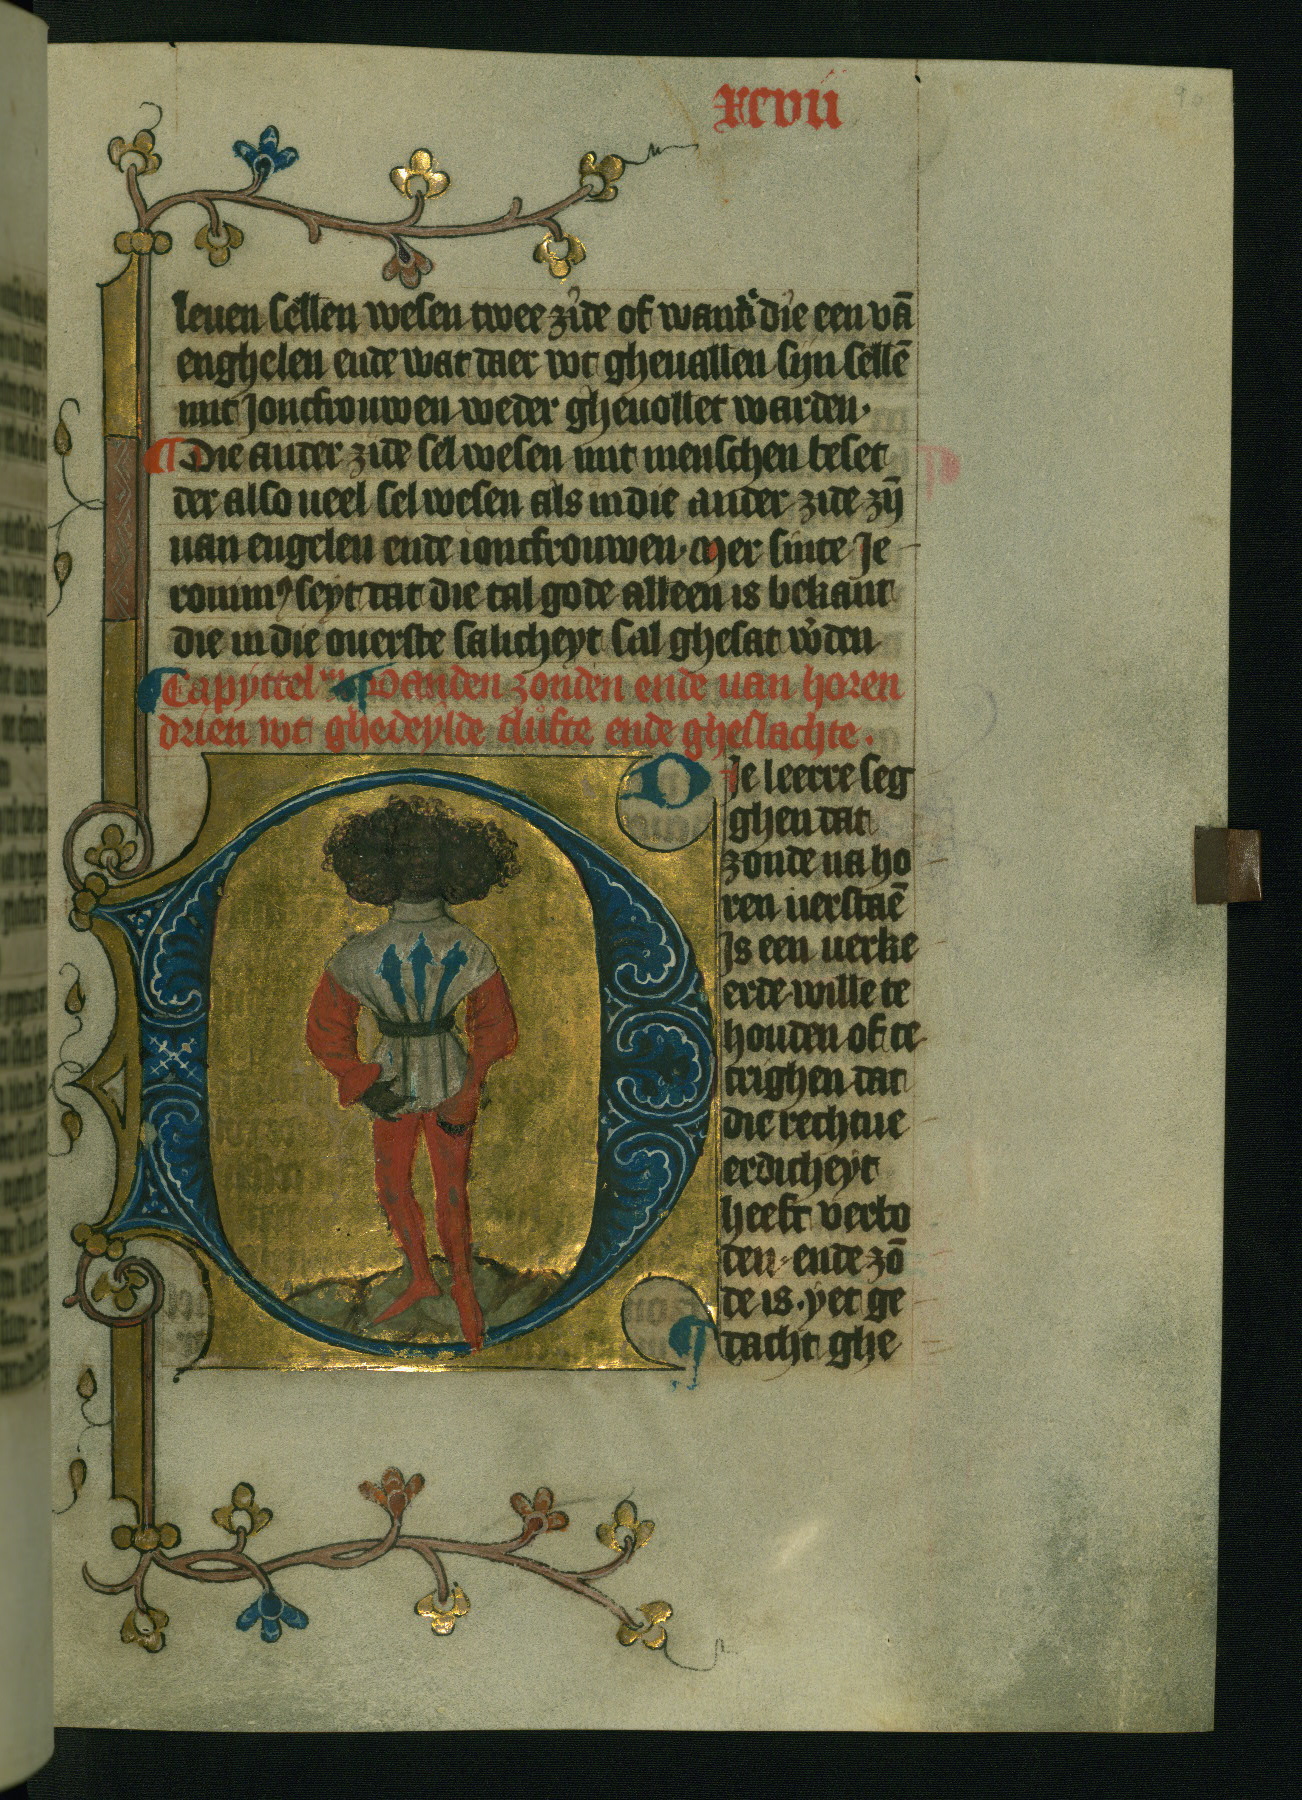 xcvii
90
leuen sellen wesen twee zide of wanđ die een vā
enghelen ende wat daer wt gheuallen sijn sellē
mit joncfrouwen weder gheuollet warden.
¶ Die ander zide sel wesen mit menschen beset
der also ueel sel wesen als in die ander zide zȳ
uan engelen ende ioncfrouwen. Mer sinte Je
ronimꝰ seyt dat die tal gode alleen is bekant
die in die ouerste salicheyt sal ghesat w̄den
Capyttel ¶ Vanden zonden ende uan horen
drien wt ghedeylde clufte ende gheslachte.
D Je leerre seg
ghen dat
zonde na ho
ren uerstaē
Js een uerke
erde wille te
houden of te
crighen dat
die rechtue
erdicheyt
heeft verbo
den. ende zō
de is. yet ge
dacht ghe